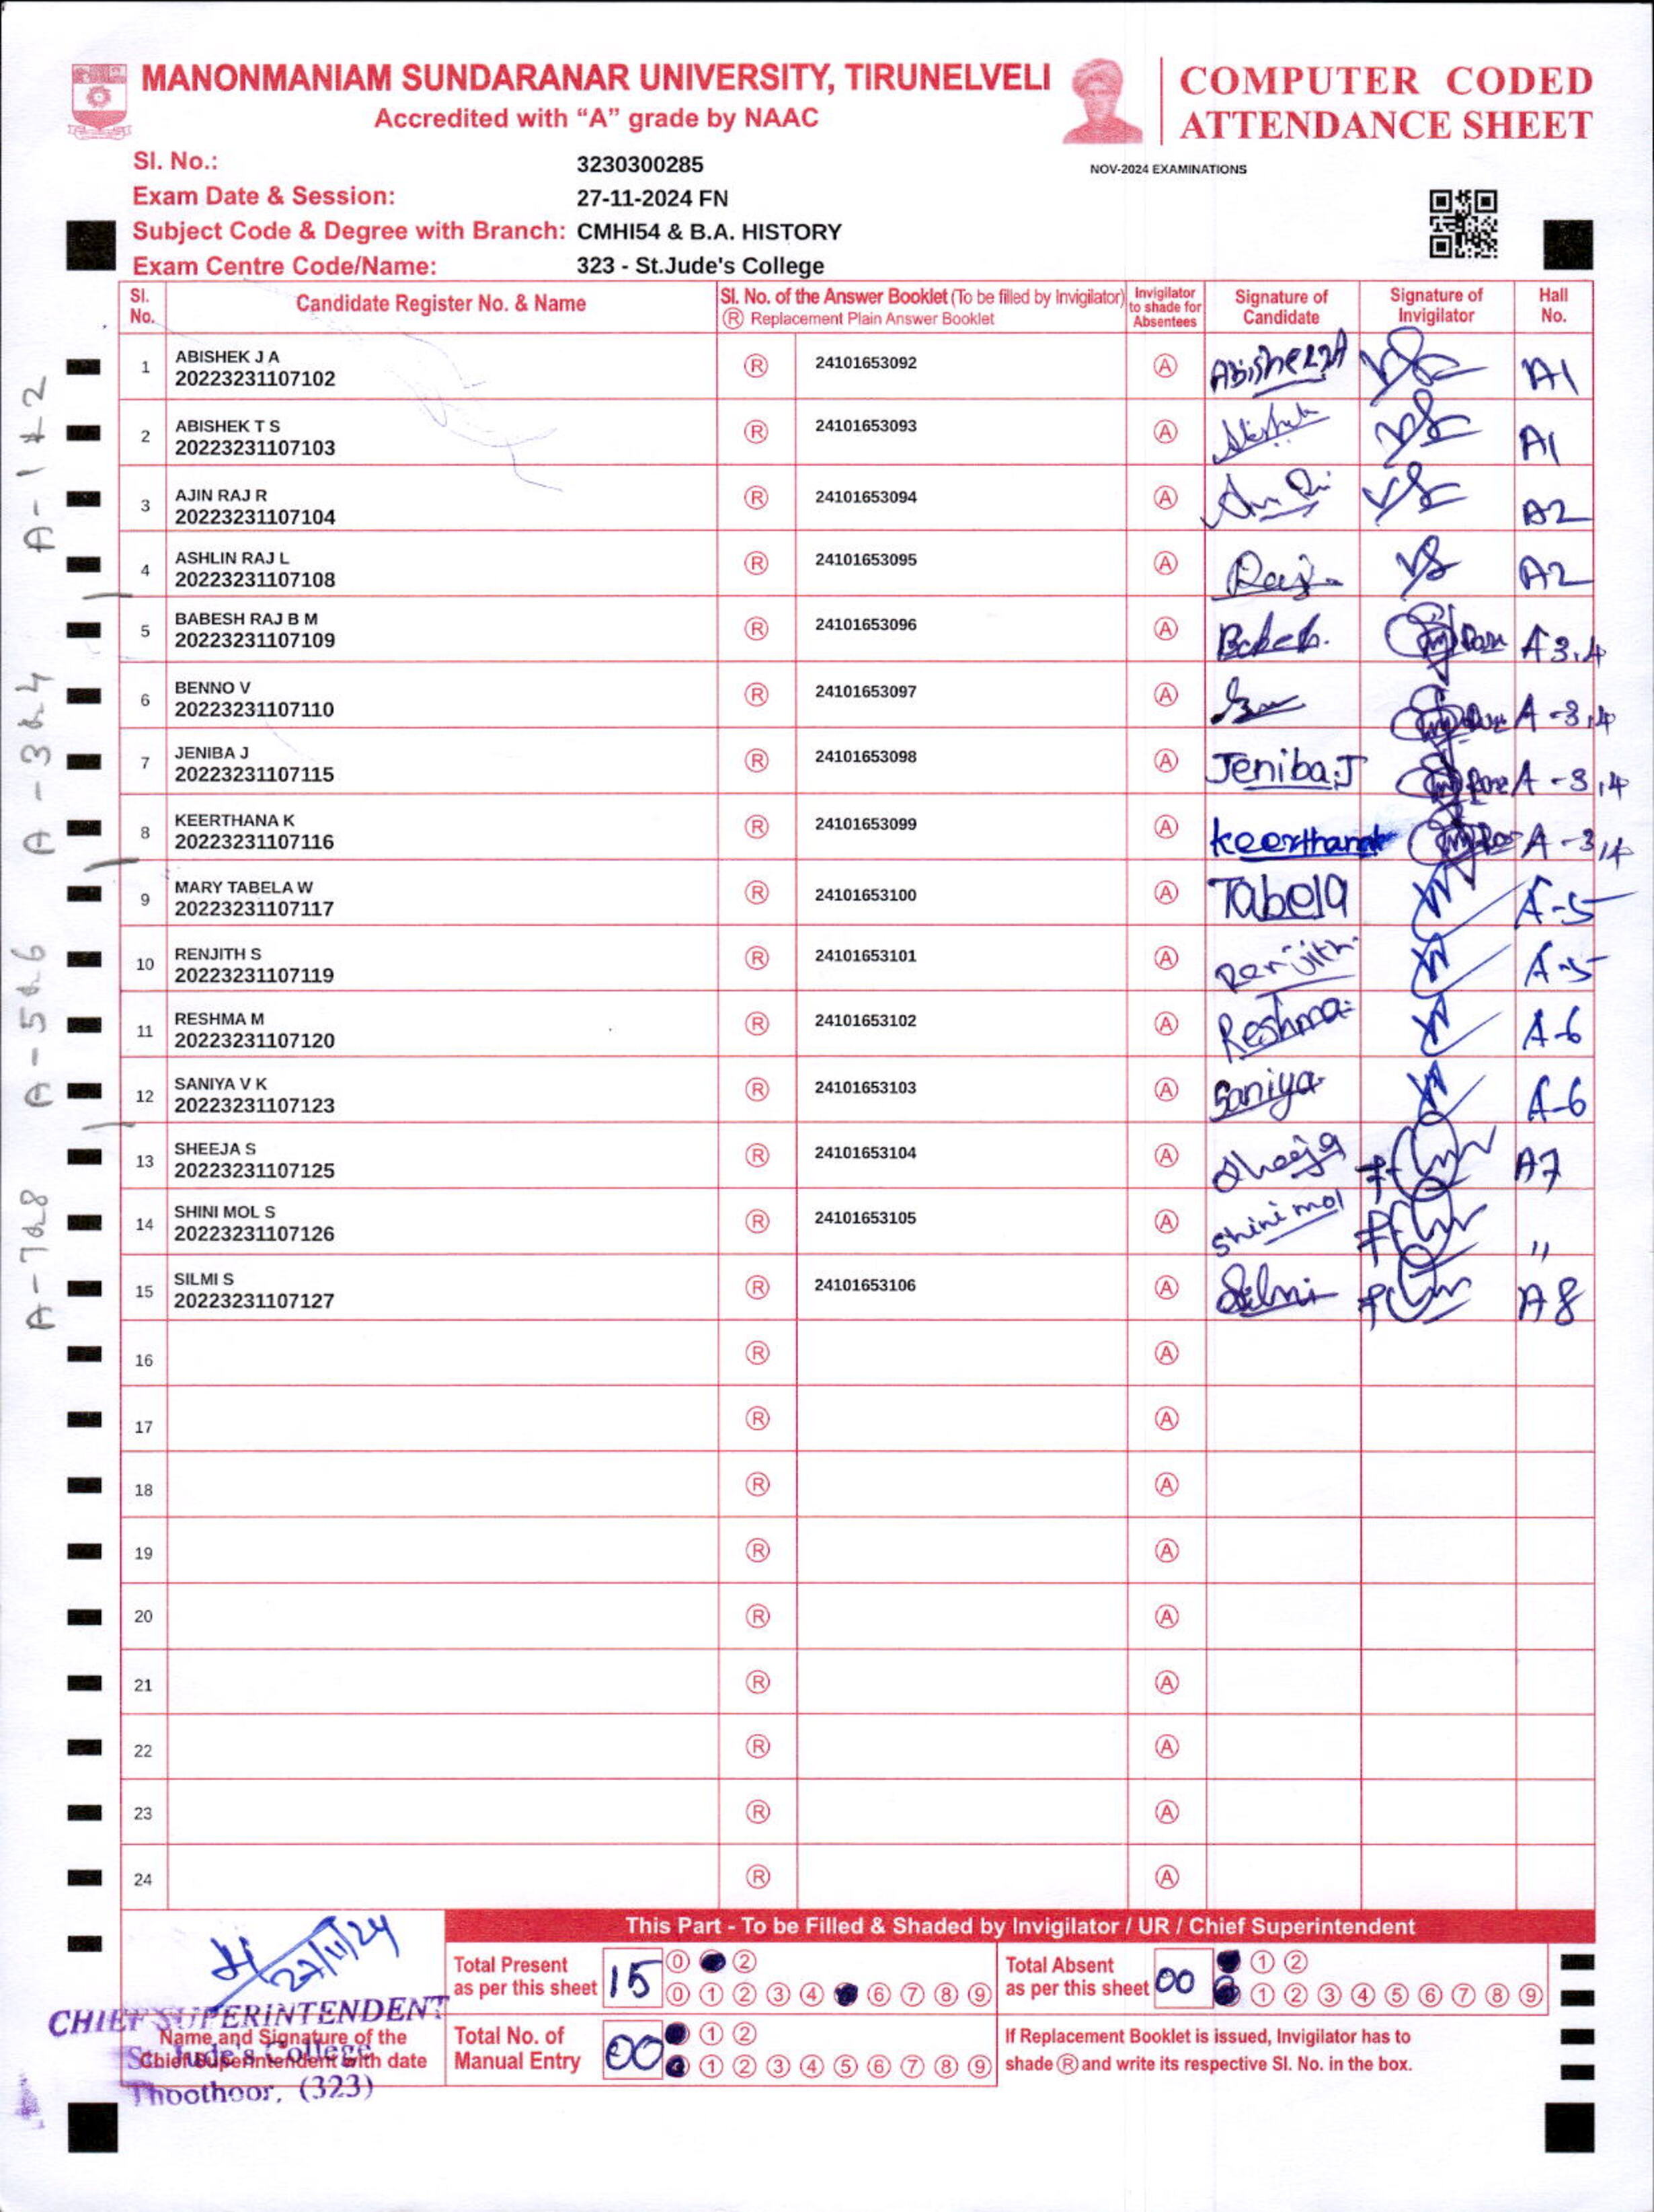 MANONMANIAM SUNDARANAR UNIVERSITY, TIRUNELVELI
Accredited with “A” grade by NAAC
COMPUTER CODED
ATTENDANCE SHEET
Sl. No.: 3230300285
NOV-2024 EXAMINATIONS
Exam Date & Session: 27-11-2024 FN
Subject Code & Degree with Branch: CMHI54 & B.A. HISTORY
Exam Centre Code/Name: 323 - St.Jude's College
Sl. No. Candidate Register No. & Name Sl. No. of the Answer Booklet (To be filled by Invigilator) Ⓡ Replacement Plain Answer Booklet Invigilator to shade for Absentees Signature of Candidate Signature of Invigilator Hall No.
1 ABISHEK J A 20223231107102 Ⓡ 24101653092 Ⓐ A1
2 ABISHEK T S 20223231107103 Ⓡ 24101653093 Ⓐ A1
3 AJIN RAJ R 20223231107104 Ⓡ 24101653094 Ⓐ A2
4 ASHLIN RAJ L 20223231107108 Ⓡ 24101653095 Ⓐ Raj A2
5 BABESH RAJ B M 20223231107109 Ⓡ 24101653096 Ⓐ A3,4
6 BENNO V 20223231107110 Ⓡ 24101653097 Ⓐ A-3,4
7 JENIBA J 20223231107115 Ⓡ 24101653098 Ⓐ Jeniba.J A-3,4
8 KEERTHANA K 20223231107116 Ⓡ 24101653099 Ⓐ A-3,4
9 MARY TABELA W 20223231107117 Ⓡ 24101653100 Ⓐ Tabela A-5
10 RENJITH S 20223231107119 Ⓡ 24101653101 Ⓐ Renjith A-5
11 RESHMA M 20223231107120 Ⓡ 24101653102 Ⓐ Reshma A-6
12 SANIYA V K 20223231107123 Ⓡ 24101653103 Ⓐ Saniya A-6
13 SHEEJA S 20223231107125 Ⓡ 24101653104 Ⓐ Sheeja A7
14 SHINI MOL S 20223231107126 Ⓡ 24101653105 Ⓐ Shini mol "
15 SILMI S 20223231107127 Ⓡ 24101653106 Ⓐ Silmi A8
16 Ⓡ Ⓐ
17 Ⓡ Ⓐ
18 Ⓡ Ⓐ
19 Ⓡ Ⓐ
20 Ⓡ Ⓐ
21 Ⓡ Ⓐ
22 Ⓡ Ⓐ
23 Ⓡ Ⓐ
24 Ⓡ Ⓐ
A-1&2
A-3&4
A-5&6
A-7&8
This Part - To be Filled & Shaded by Invigilator / UR / Chief Superintendent
27/11/24
CHIEF SUPERINTENDENT
St. Jude's College
Thoothoor, (323)
Name and Signature of the
Chief Superintendent with date
Total Present
as per this sheet 15
0 2
0 1 2 3 4 6 7 8 9
Total Absent
as per this sheet 00
1 2
1 2 3 4 5 6 7 8 9
Total No. of
Manual Entry 00
1 2
1 2 3 4 5 6 7 8 9
If Replacement Booklet is issued, Invigilator has to
shade Ⓡ and write its respective Sl. No. in the box.